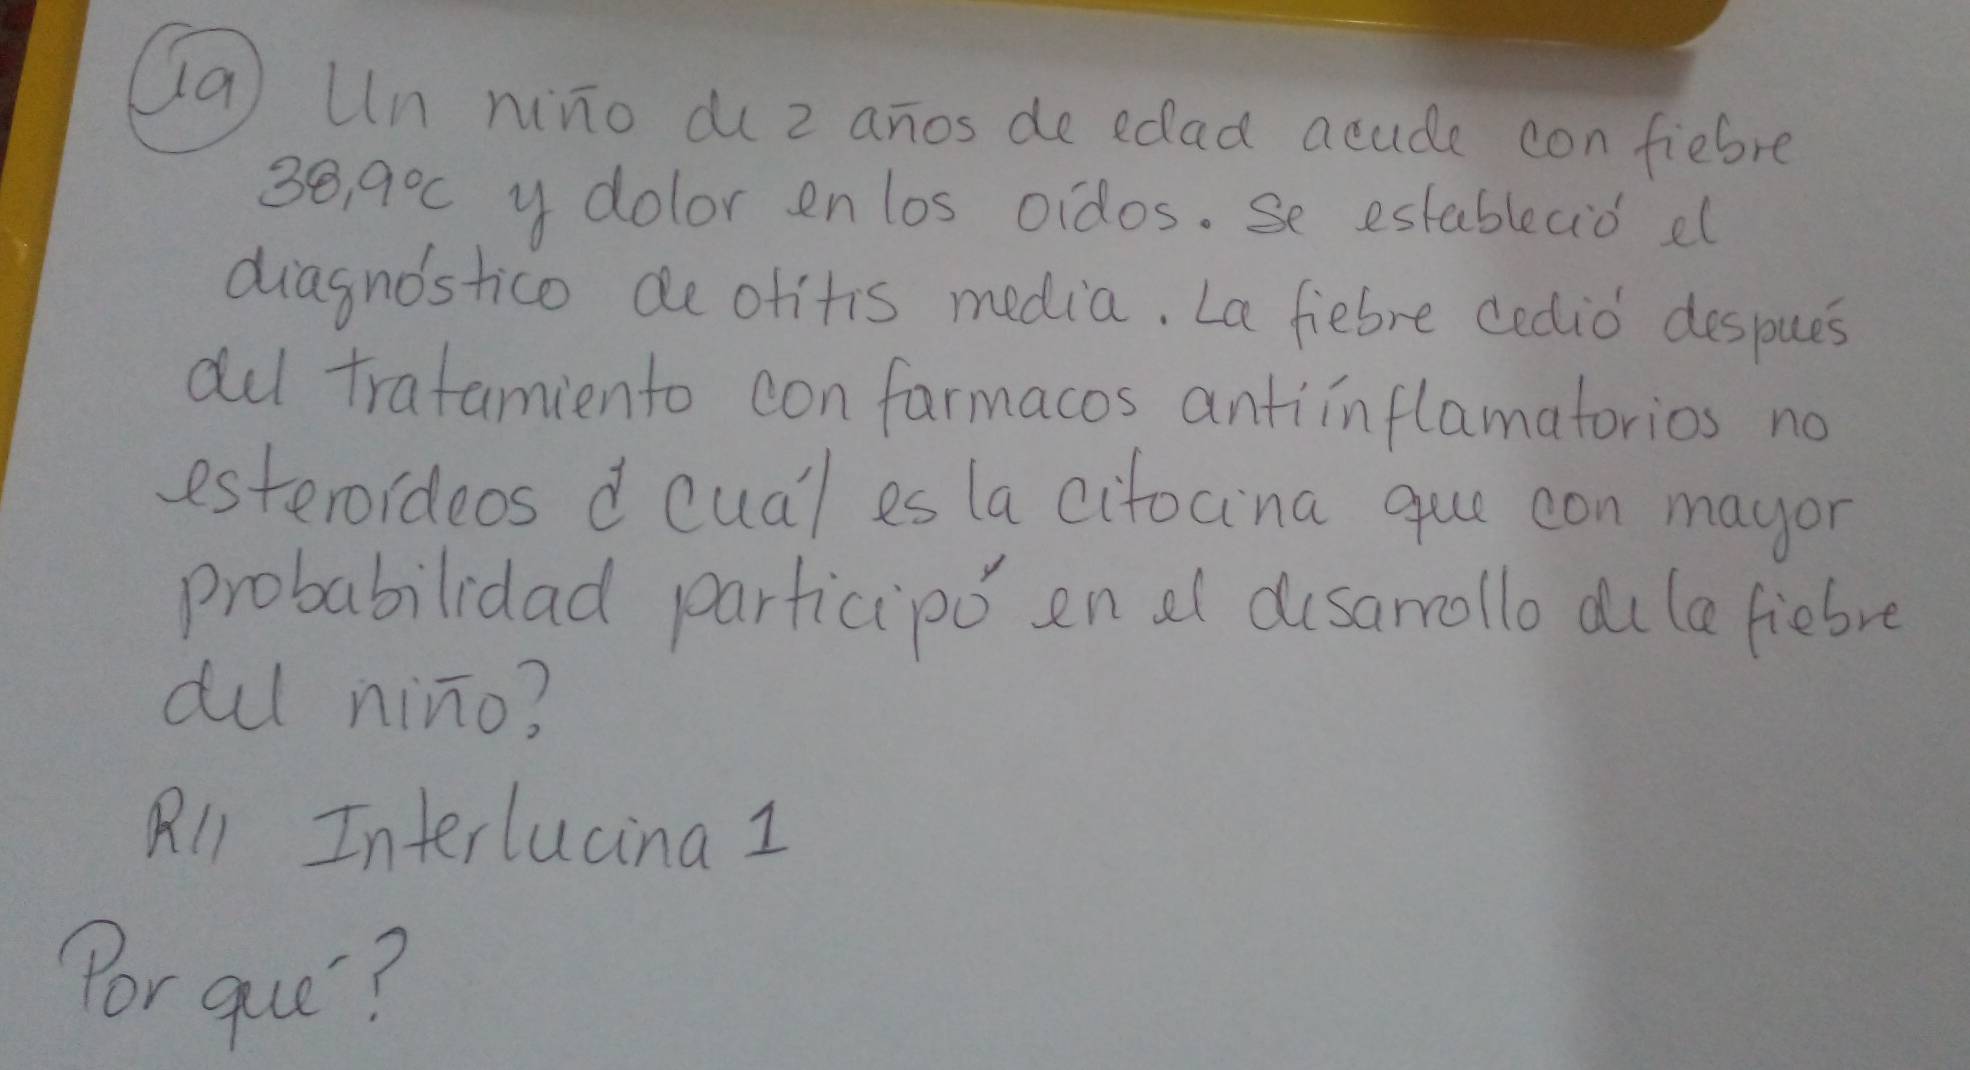 1a Un niño de 2 años de edad acude con fiebre
38,9°C y dolor en los oídos. Se estableció el
diagnóstico de otitis media. La fiebre cedió después
del tratamiento con farmacos antiinflamatorios no
esteroídeos ¿ Cuál es la citocina que con mayor
probabilidad participó en el desarrollo de la fiebre
del niño?
R// Interlucina 1
Por qué?